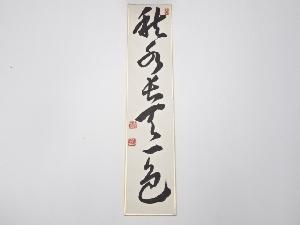 秋水長天一色